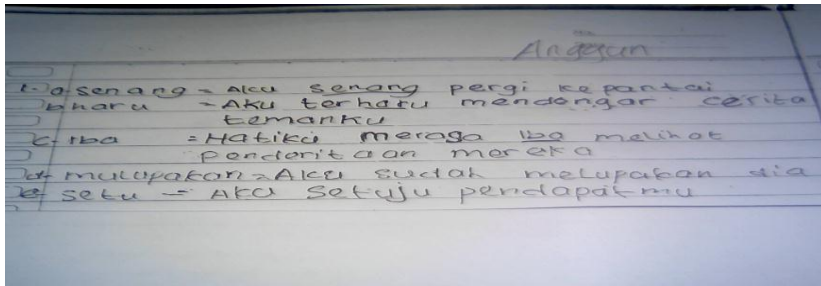 Anggun
1. a senang = Aku senang pergi ke pantai
b haru = Aku terharu mendengar cerita
temanku
c iba = Hatiku merasa iba melihat
penderitaan mereka
d mulupakan = Aku sudah melupakan dia
e setu = Aku Setuju pendapatmu